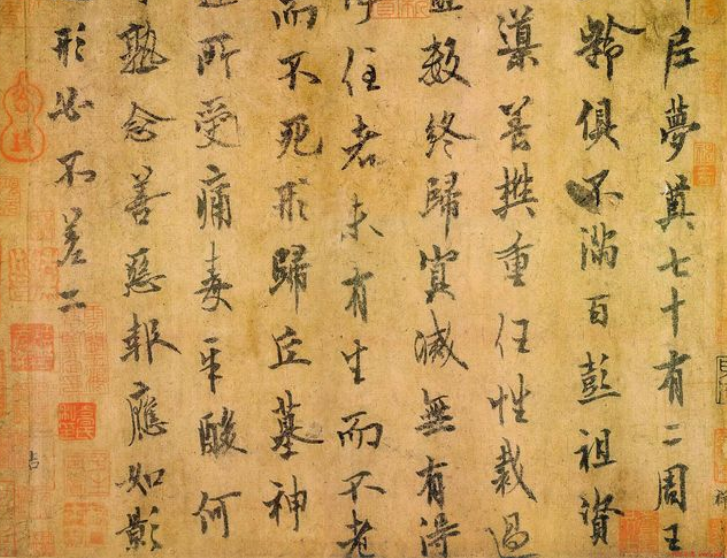 尼夢奠七十有二周王
齡俱不滿百彭祖資
導養樊重任性裁過
數終歸冥滅無有得
住者未有生而不老
而不死形歸丘墓神
所受痛毒辛酸何
熟念善惡報應如影
形必不差二